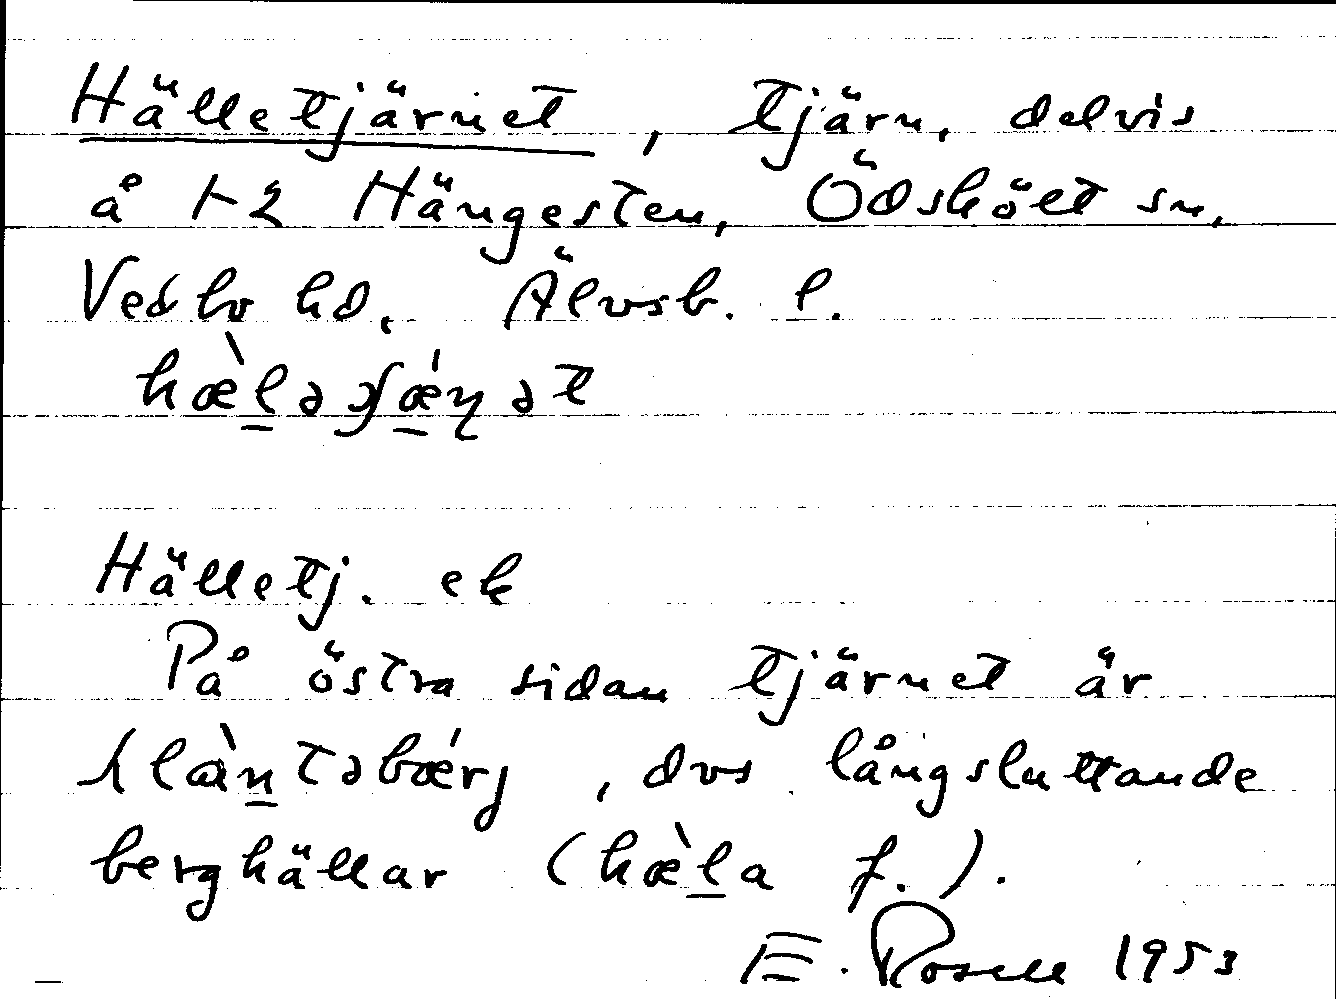 Hälletjärnet, tjärn, delvis
å 1-2 Hängesten, Ödskölt sn,
Vedbo hd, Älvsb. l.
hæ̀l̲ə ʃǽ̲ɳət
Hälletj. ek
På östra sidan tjärnet är
klàn̲təbǽrj, dvs långsluttande
berghällar (hæ̀l̲a f.).
E. Rosell 1953